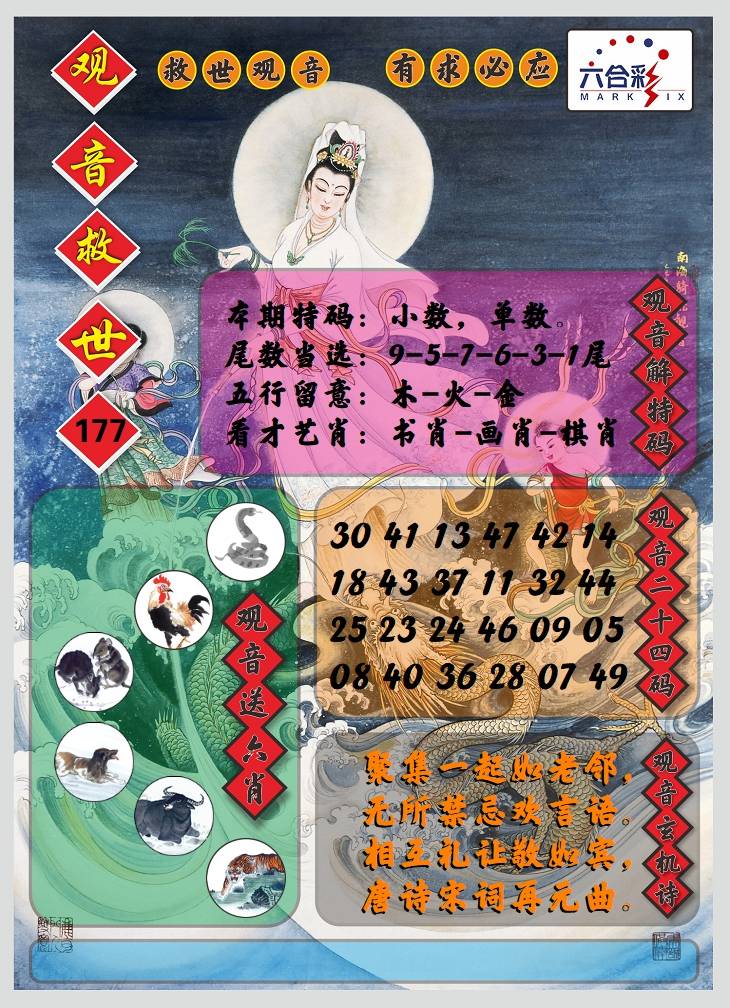 救世观音 有求必应
六合彩
MARK SIX
观音救世
177
观音解特码
本期特码：小数，单数。
尾数当选：9-5-7-6-3-1尾
五行留意：木-火-金
看才艺肖：书肖-画肖-棋肖
观音送六肖
观音二十四码
30 41 13 47 42 14
18 43 37 11 32 44
25 23 24 46 09 05
08 40 36 28 07 49
观音玄机诗
聚集一起如老邻，
无所禁忌欢言语。
相互礼让敬如宾，
唐诗宋词再元曲。